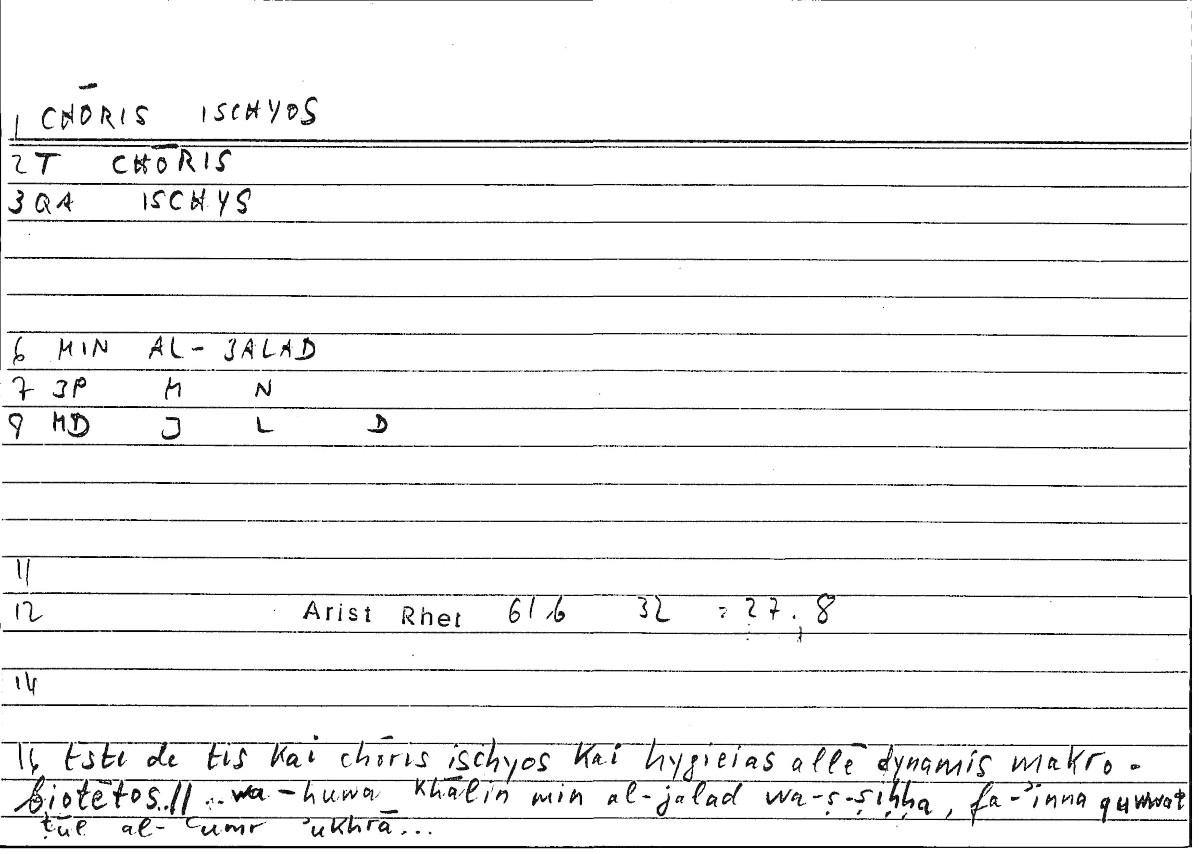 1 CHŌRIS ISCHYOS
2 T CHŌRIS
3 QA ISCHYS
6 MIN AL-JALAD
7 JP M N
8 MD J L D
11
12 Arist Rhet 61b 32 = 27.8
14
16 Esti de tis kai chōris ischyos kai hygieias allē dynamis makro-
biotētos.// .. wa-huwa khālin min al-jalad wa-ṣ-ṣiḥḥa, fa-ʾinna quwwat
ṭūl al-ʿumr ʾukhrā...